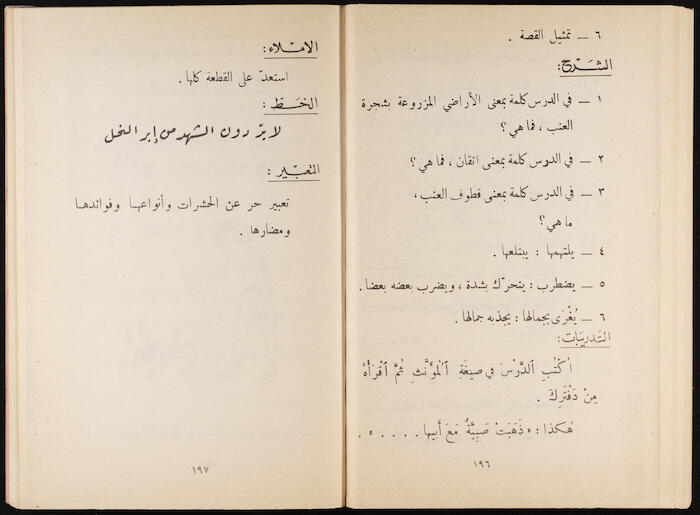 ٦ ـ تمثيل القصة .
الشرح :
١ ـ في الدرس كلمة بمعنى الأراضي المزروعة بشجرة
العنب ، فما هي ؟
٢ ـ في الدرس كلمة بمعنى اتقان ، فما هي ؟
٣ ـ في الدرس كلمة بمعنى قطوف العنب ،
ما هي ؟
٤ ـ يلتهمها : يبتلعها .
٥ ـ يضطرب : يتحرّك بشدة ، ويضرب بعضه بعضا .
٦ ـ يُغْرَى بجمالها : يجذبه جمالها .
التدريبات :
اُكْتُبِ ٱلدَّرْسَ في صيغَةِ ٱلْمُؤَنَّثِ ثُمَّ ٱقْرَأْهُ
مِنْ دَفْتَرِكَ .
هٰكذا : « ذَهَبَتْ صَبِيَّةٌ مَعَ أَبيها . . . . . » .
١٩٦
الاملاء :
استعدّ على القطعة كلها .
الخط :
لا بدّ دون الشهد من إبر النحل
التعبير :
تعبير حر عن الحشرات وأنواعها وفوائدها
ومضارها .
١٩٧